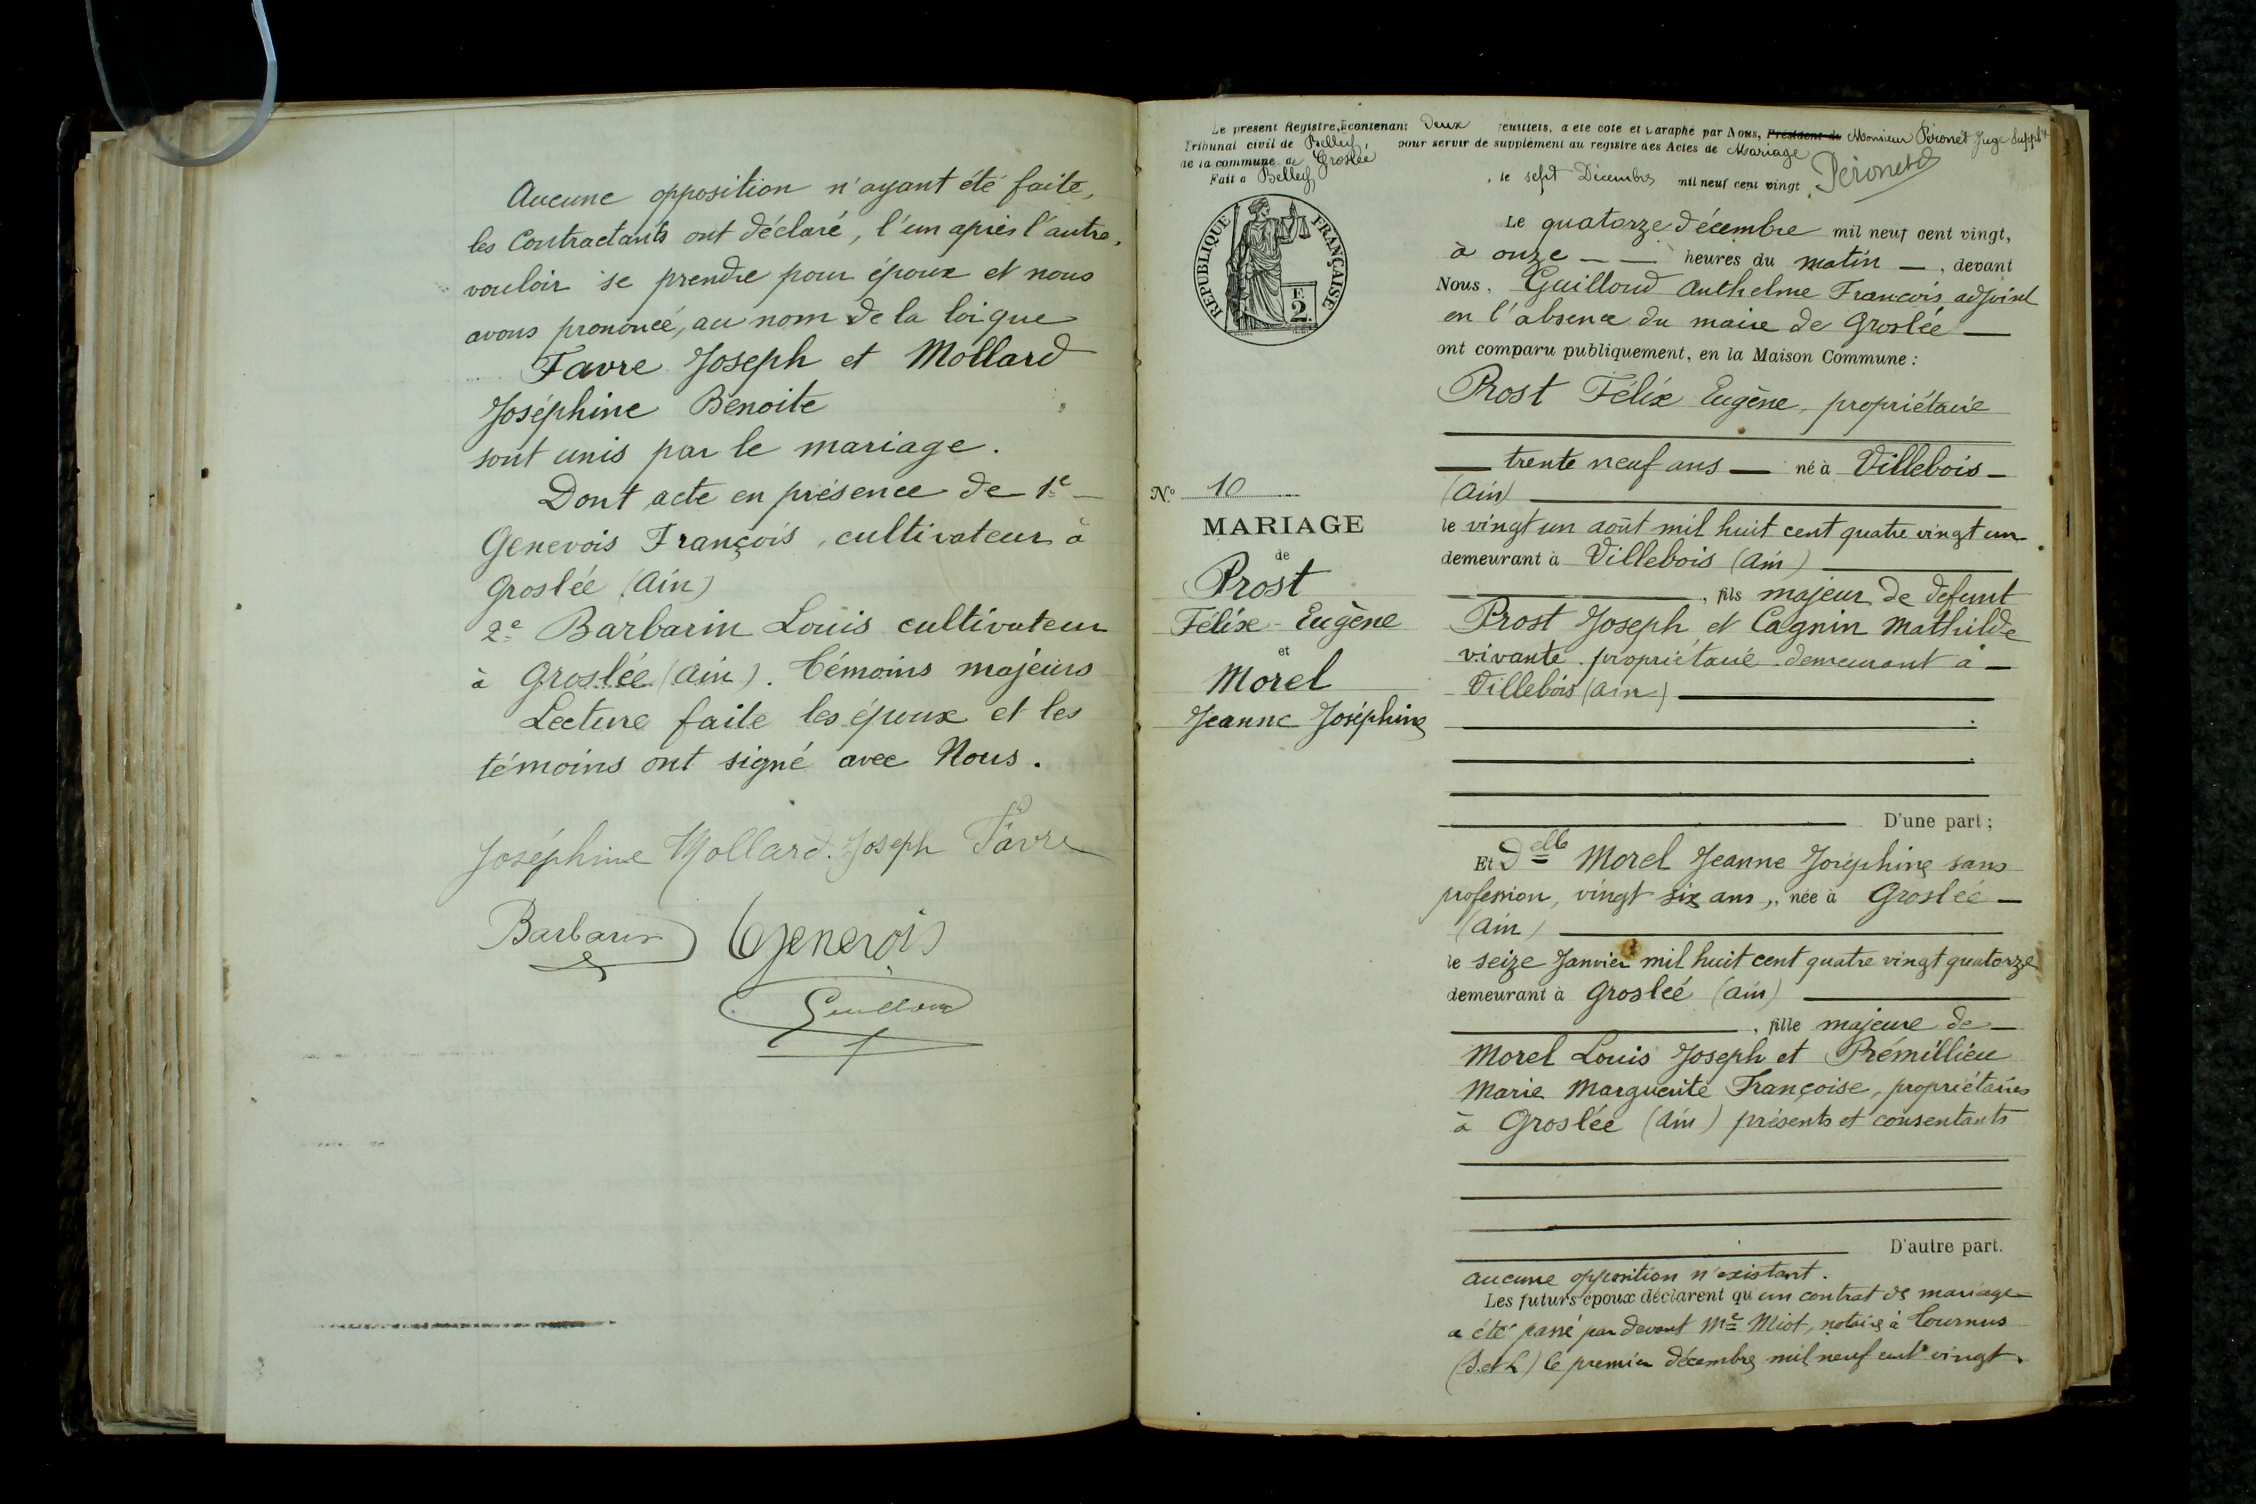 Aucune opposition n'ayant été faite,
les Contractants ont déclaré, l'un après l'autre,
vouloir se prendre pour époux et nous
avons prononcé, au nom de la loi que
Favre Joseph et Mollard
Joséphine Benoite
sont unis par le mariage.
Dont acte en présence de 1e
Genevois François, cultivateur à
Groslée (Ain)
2e Barbarin Louis cultivateur
à Groslée (Ain). Témoins majeurs
Lecture faite les époux et les
témoins ont signé avec Nous.
Joséphine Mollard. Joseph Favre
Barbarin Genevois
Guilloud
Le présent Registre, contenant Deux feuillets, a été coté et paraphé par Nous, Président du Monsieur Péronet Juge Suppt
Tribunal civil de Belley pour servir de supplément au registre des Actes de Mariage
de la commune de Groslée
Fait à Belley, le sept Décembre mil neuf cent vingt. Péronet
RÉPUBLIQUE FRANÇAISE
E
2.
Le quatorze décembre mil neuf cent vingt,
à onze — — heures du matin —, devant
Nous, Guilloud Anthelme François adjoint
en l'absence du maire de Groslée —
ont comparu publiquement, en la Maison Commune :
Prost Félix Eugène, propriétaire
— trente neuf ans — né à Villebois —
(Ain)
le vingt un août mil huit cent quatre vingt un
demeurant à Villebois (Ain)
, fils majeur de defunt
Prost Joseph et Cagnin Mathilde
vivante propriétaire demeurant à —
Villebois (Ain)
D'une part ;
N° 10
MARIAGE
de
Prost
Félix-Eugène
et
Morel
Jeanne Joséphine
Et Delle Morel Jeanne Joséphine sans
profession, vingt six ans, née à Groslée —
(Ain)
le seize Janvier mil huit cent quatre vingt quatorze
demeurant à Groslée (Ain)
, fille majeure de —
Morel Louis Joseph et Prémillieu
Marie Marguerite Françoise, propriétaires
à Groslée (Ain) présents et consentants
D'autre part.
aucune opposition n'existant.
Les futurs époux déclarent qu'un contrat de mariage
a été passé par devant Me Miot, notaire à Tournus
(S.et L) le premier décembre mil neuf cent vingt.